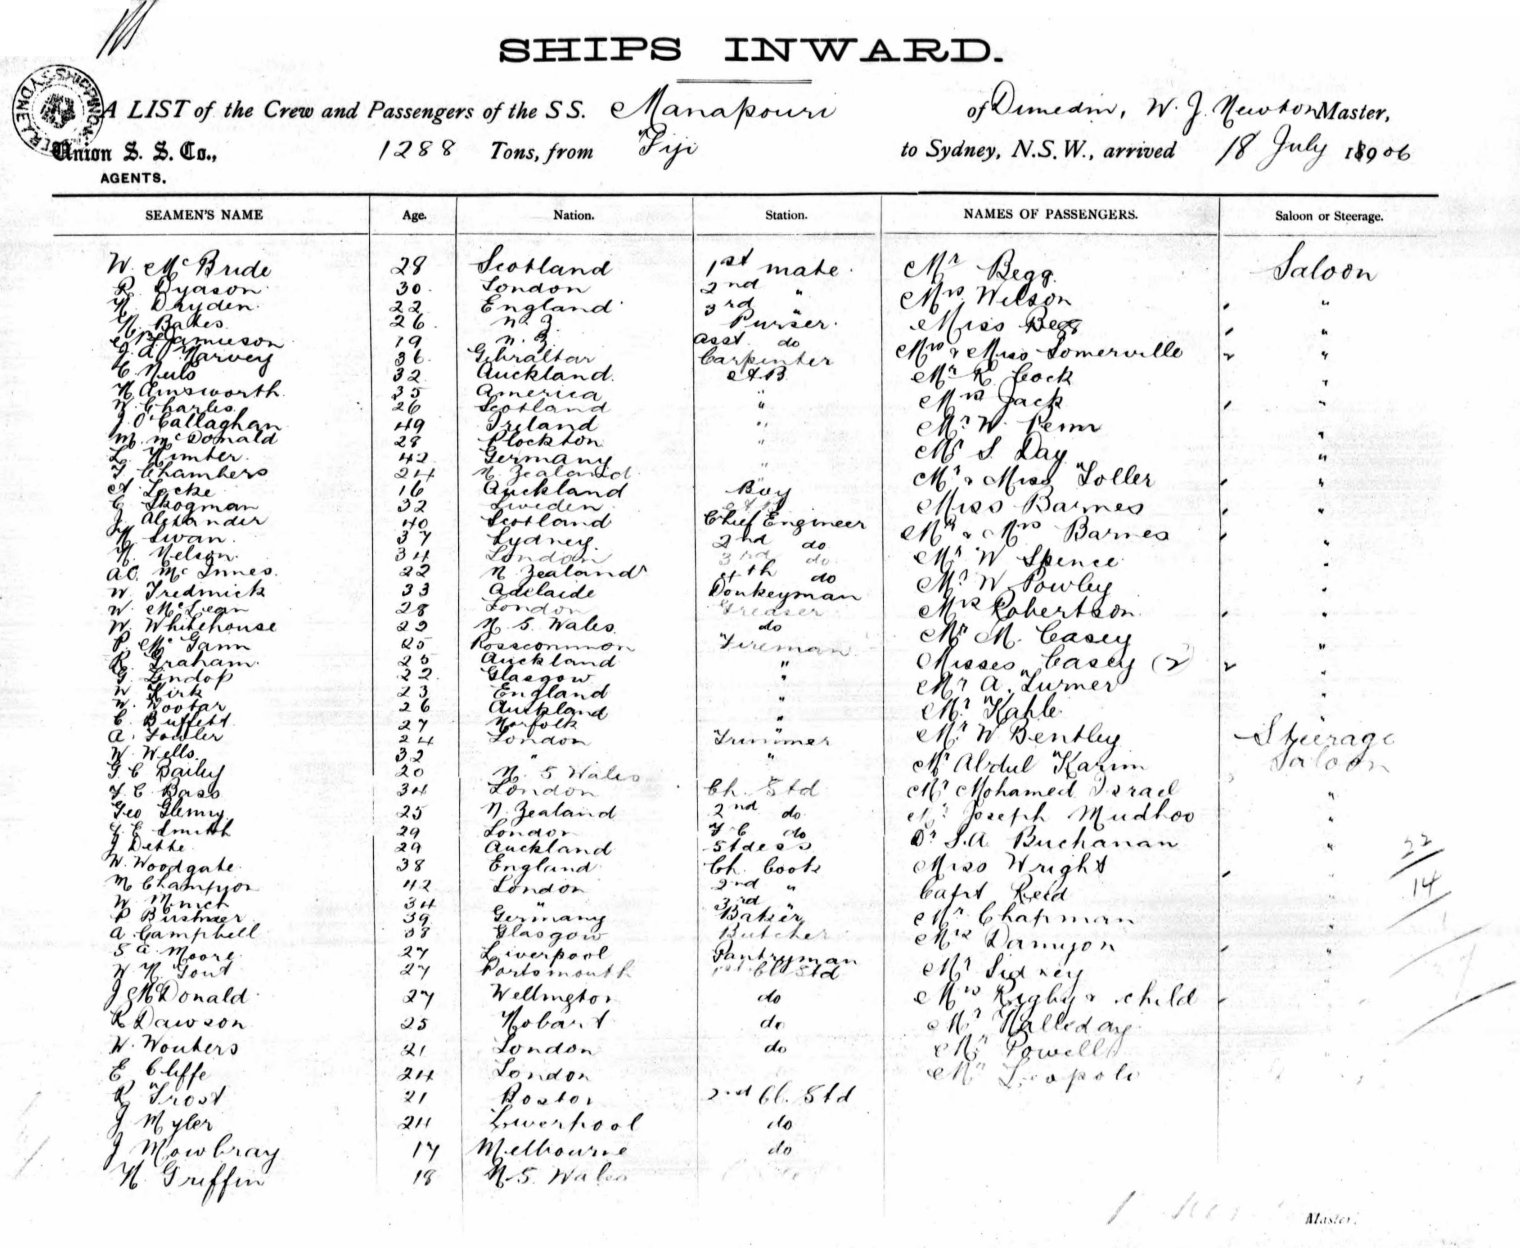 SHIPS INWARD.
A LIST of the Crew and Passengers of the S S. Manapouri of Dunedin, W. J. Newton Master,
Union S. S. Co., 1288 Tons, from Fiji to Sydney, N.S.W., arrived 18 July 1906
AGENTS.
SEAMEN'S NAME Age. Nation. Station. NAMES OF PASSENGERS. Saloon or Steerage.
W. McBride 28 Scotland 1st mate. Mr Begg. Saloon
R. Dyason 30. London 2nd " Mrs Wilson "
H. Dryden 22 England 3rd " Miss Begg "
H. Bakes 26 N. Z. Purser. Mrs & Miss Somerville "
Jamieson 19 N. Z. asst do Mr R. Cock "
J. A. Harvey 36. Gibraltar Carpenter Mrs Jack "
C Nuls 32 Auckland. A.B. Mr W. Penn "
H Ainsworth 35 America " Mr S Day "
W. Charles 26 Scotland " Mr & Miss Toller "
J. O'Callaghan 49 Ireland " Miss Barnes "
M. McDonald 28 Plockton " Mr & Mrs Barnes "
L. Kimber 42 Germany " Mr W Spence "
T Chambers 24 N. Zealand " Mr W Powley "
A Locke 16 Auckland Boy Mrs Robertson "
C Skogman 32 Sweden Mr M. Casey "
J Alexander 40 Scotland Chief Engineer Misses Casey (2) "
H Swan 37 Sydney 2nd do Mr A. Turner "
H. Nelson 34 London 3rd do Mr Kahle "
A.C. McInnes. 22 N Zealand 4th do Mr W Bentley Steerage
W Fredrick 33 Adelaide Donkeyman Mr Abdul Karim Saloon
W McLean 28 London Greaser Mr Mohamed Israel "
W. Whitehouse 29 N. S. Wales do Mr Joseph Mudhoo "
P. McGann 25 Roscommon Fireman Dr S.A. Buchanan "
R. Graham 25 Auckland " Miss Wright "
G. Lindop 22 Glasgow " Capt Reid "
W Kirk 23 England " Mr Chapman "
W. Wootar 26 Auckland " Mrs Damyon "
C. Buffett 27 Norfolk " Mr Sidney "
A. Fowler 24 London Trimmer Mrs Rigby & child "
W. Wells 32 " " Mr Halleday
G. C Bailey 20 N. S Wales Mr Powell
T. C Bass 34 London Ch. Std Mr Leopold
Geo Glenny 25 N. Zealand 2nd do
T. E. Smith 29 London F C do
J Dette 29 Auckland Stdess
W. Woodgate 38 England Ch. Cook
M Champion 42 London 2nd "
W Minch 34 " 3rd "
P Bushnaer 39 Germany Baker
A. Campbell 38 Glasgow Butcher
S A. Moore 27 Liverpool Pantryman
W H Gout 27 Portsmouth 1st Cl Std
J McDonald 27 Wellington do
R Dawson 25 Hobart do
W. Wouters 21 London do
E Cliffe 24 London
R Frost 21 Boston 2nd Cl. Std
J Myler 24 Liverpool do
J Mowbray 17 Melbourne do
H. Griffin 18 N.S. Wales
22
14
Master.